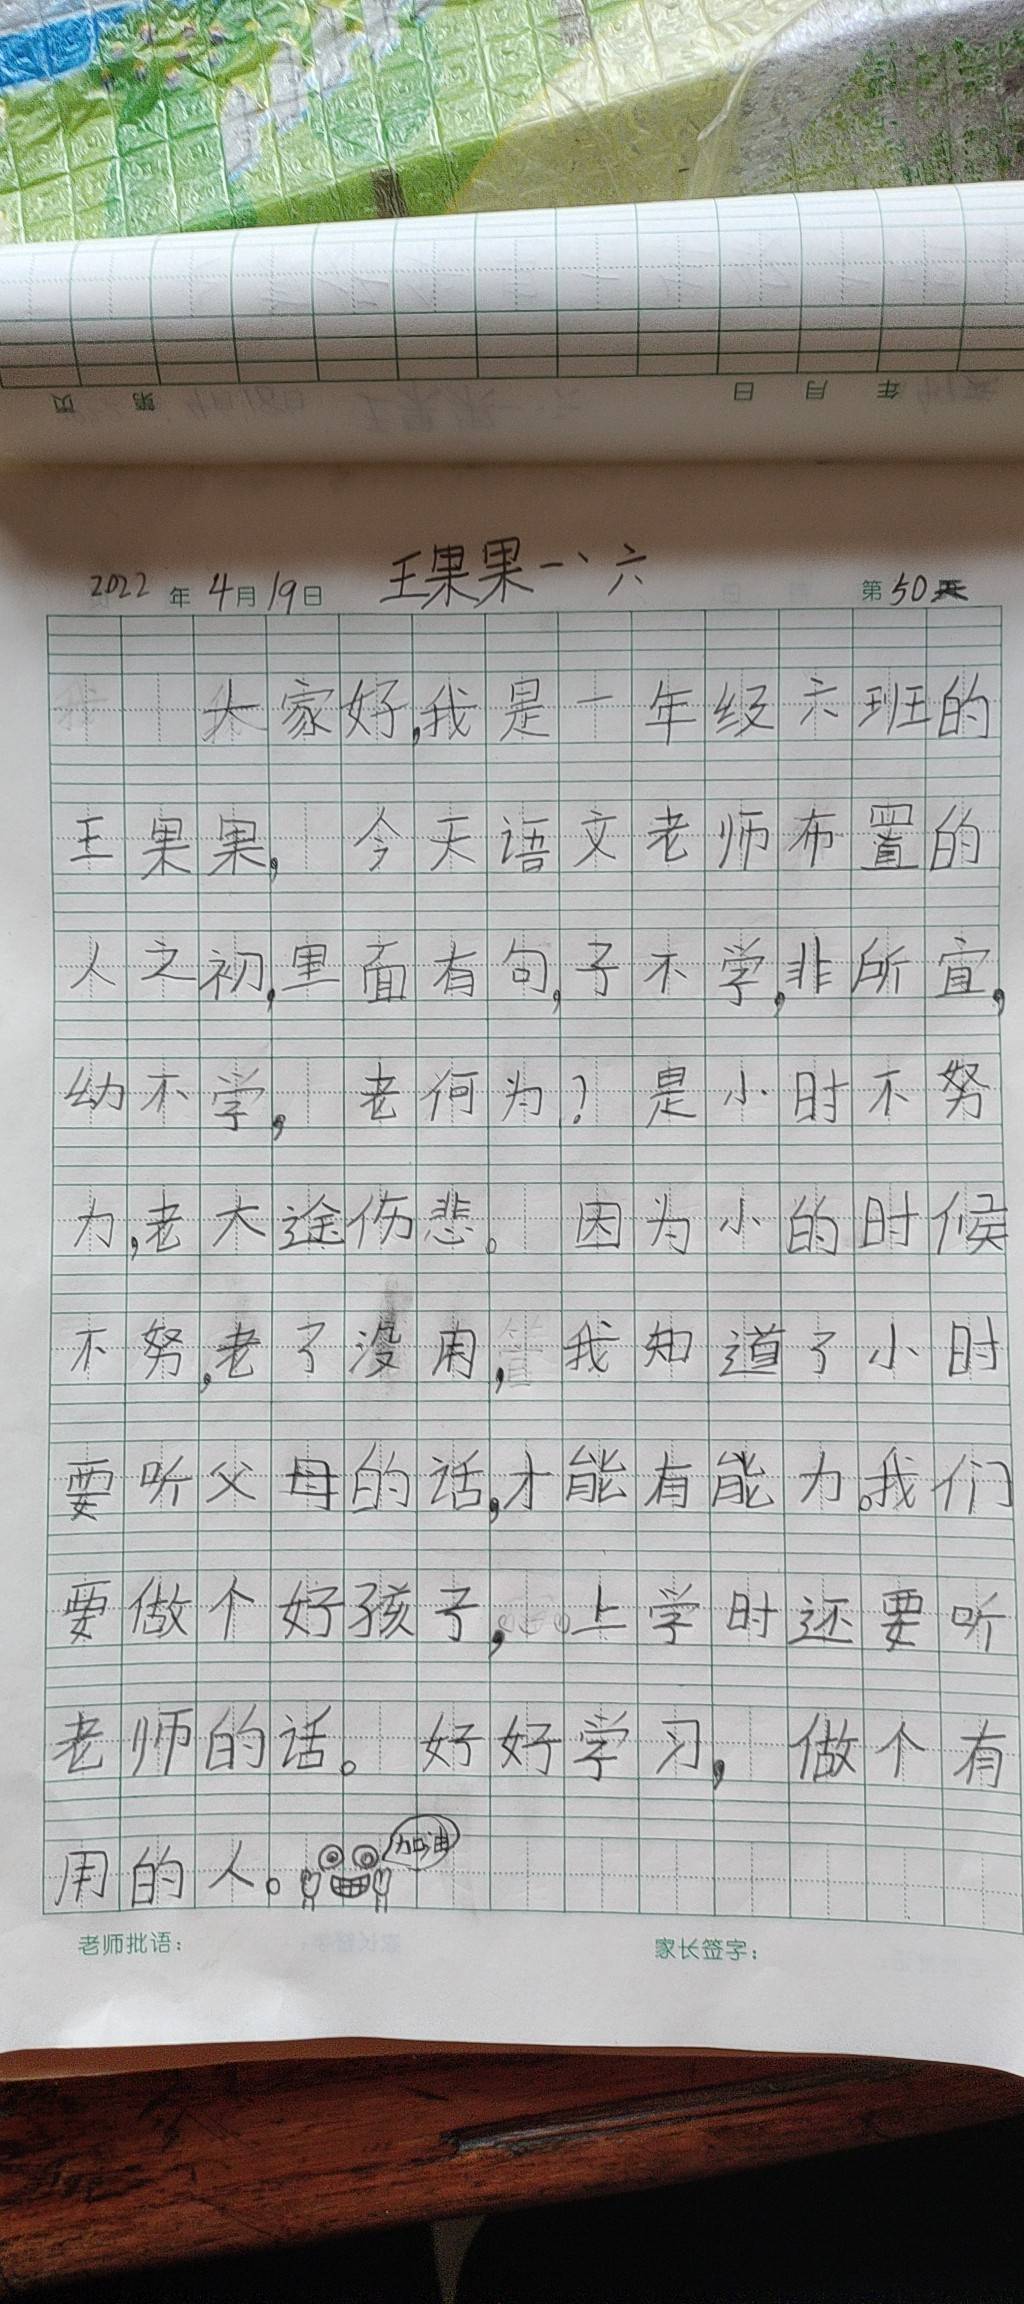 页 第 日 月 年
王果果一、六
2022年4月19日 第50天
大家好,我是一年级六班的
王果果, 今天语文老师布置的
人之初,里面有句,子不学,非所宜,
幼不学, 老何为?是小时不努
力,老大途伤悲。 因为小的时候
不努,老了没用, 我知道了小时
要听父母的话,才能有能力。我们
要做个好孩子, 上学时还要听
老师的话。 好好学习, 做个有
用的人。 加油
老师批语: 家长签字: